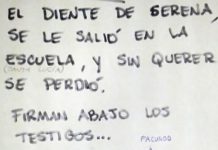 EL DIENTE DE SERENA,
SE LE SALIÓ EN LA
ESCUELA, Y SIN QUERER
SE PERDIÓ.
FIRMAN ABAJO LOS
TESTIGOS...